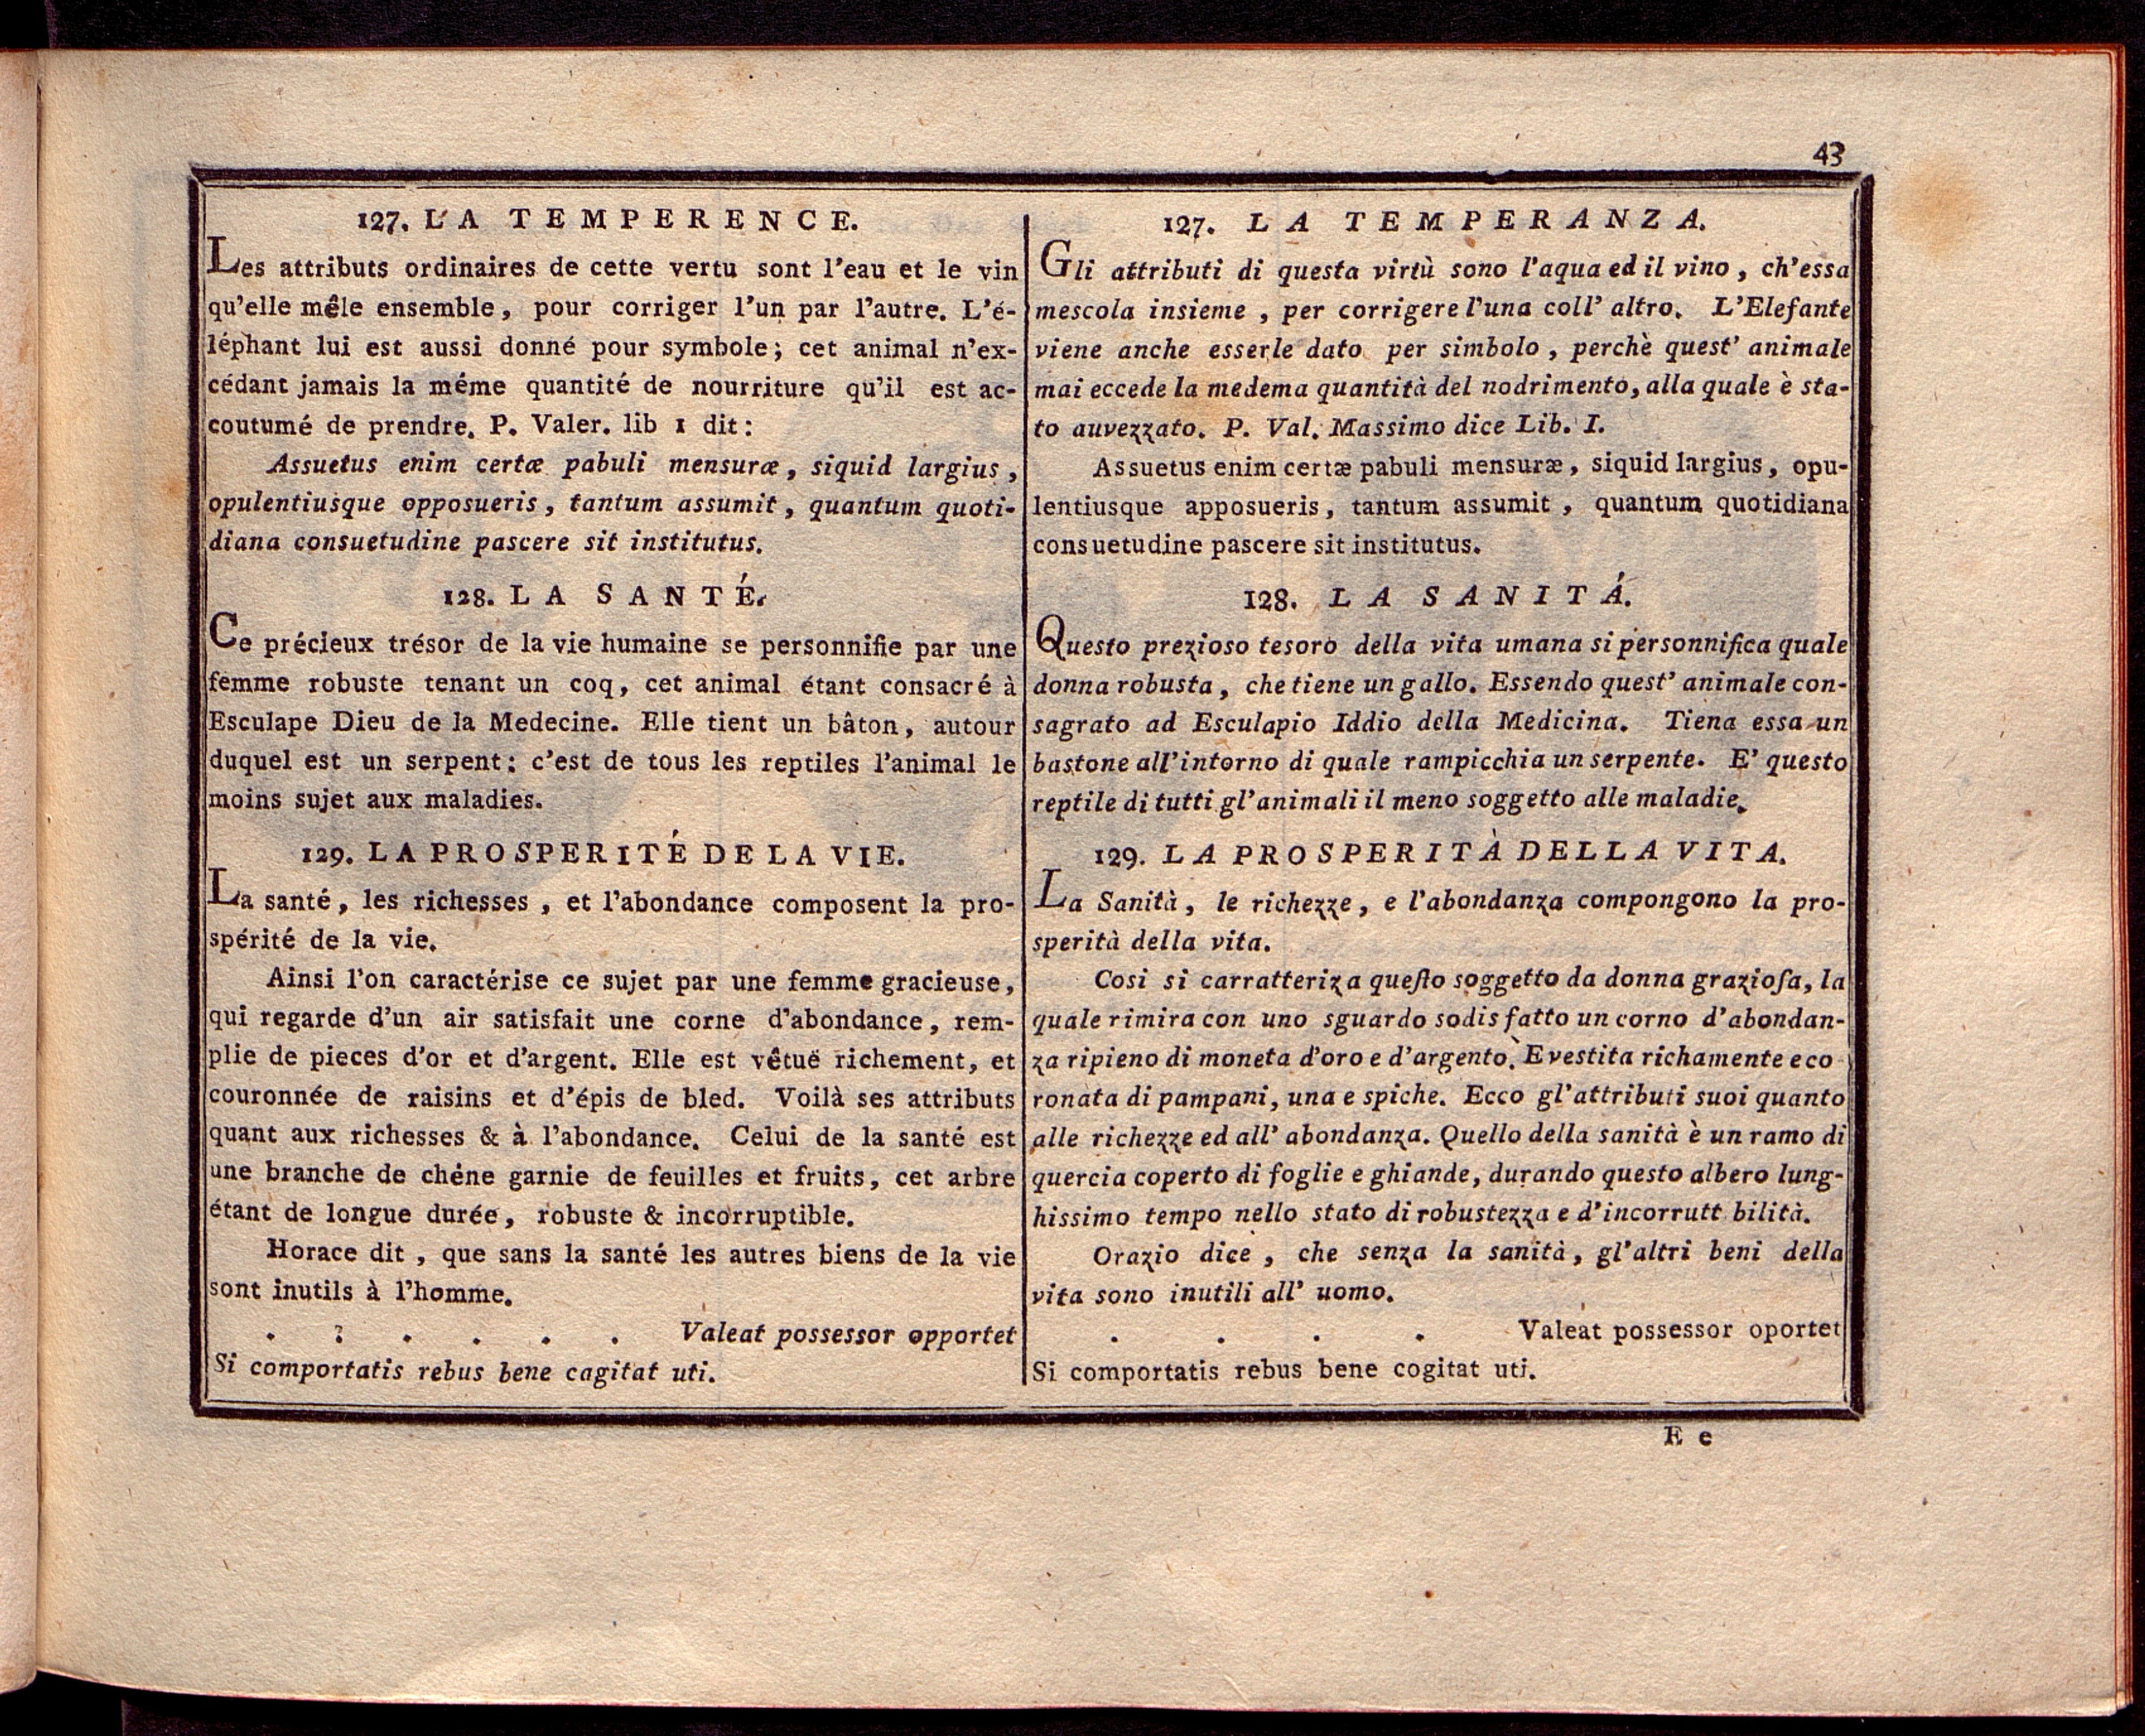 43
127. LA TEMPERENCE.
Les attributs ordinaires de cette vertu sont l'eau et le vin
qu'elle mêle ensemble, pour corriger l'un par l'autre. L'é-
léphant lui est aussi donné pour symbole; cet animal n'ex-
cédant jamais la méme quantité de nourriture qu'il est ac-
coutumé de prendre. P. Valer. lib 1 dit:
Assuetus enim certæ pabuli mensuræ, siquid largius,
opulentiusque opposueris, tantum assumit, quantum quoti-
diana consuetudine pascere sit institutus.
128. LA SANTÉ.
Ce précieux trésor de la vie humaine se personnifie par une
femme robuste tenant un coq, cet animal étant consacré à
Esculape Dieu de la Medecine. Elle tient un bâton, autour
duquel est un serpent: c'est de tous les reptiles l'animal le
moins sujet aux maladies.
129. LA PROSPERITÉ DE LA VIE.
La santé, les richesses, et l'abondance composent la pro-
spérité de la vie.
Ainsi l'on caractérise ce sujet par une femme gracieuse,
qui regarde d'un air satisfait une corne d'abondance, rem-
plie de pieces d'or et d'argent. Elle est vêtuë richement, et
couronnée de raisins et d'épis de bled. Voilà ses attributs
quant aux richesses & à l'abondance. Celui de la santé est
une branche de chéne garnie de feuilles et fruits, cet arbre
étant de longue durée, robuste & incorruptible.
Horace dit, que sans la santé les autres biens de la vie
sont inutils à l'homme.
. . . . . . Valeat possessor opportet
Si comportatis rebus bene cagitat uti.
127. LA TEMPERANZA.
Gli attributi di questa virtù sono l'aqua ed il vino, ch'essa
mescola insieme, per corrigere l'una coll' altro. L'Elefante
viene anche esserle dato per simbolo, perchè quest' animale
mai eccede la medema quantità del nodrimento, alla quale è sta-
to auvezzato. P. Val. Massimo dice Lib. I.
Assuetus enim certæ pabuli mensuræ, siquid largius, opu-
lentiusque apposueris, tantum assumit, quantum quotidiana
consuetudine pascere sit institutus.
128. LA SANITÁ.
Questo prezioso tesoro della vita umana si personnifica quale
donna robusta, che tiene un gallo. Essendo quest' animale con-
sagrato ad Esculapio Iddio della Medicina. Tiena essa un
bastone all'intorno di quale rampicchia un serpente. E' questo
reptile di tutti gl'animali il meno soggetto alle maladie.
129. LA PROSPERITÀ DELLA VITA.
La Sanità, le richezze, e l'abondanza compongono la pro-
sperità della vita.
Cosi si carratteriza queſto soggetto da donna grazioſa, la
quale rimira con uno sguardo sodisfatto un corno d'abondan-
za ripieno di moneta d'oro e d'argento. E vestita richamente e co
ronata di pampani, una e spiche. Ecco gl'attributi suoi quanto
alle richezze ed all' abondanza. Quello della sanità è un ramo di
quercia coperto di foglie e ghiande, durando questo albero lung-
hissimo tempo nello stato di robustezza e d'incorrutt bilità.
Orazio dice, che senza la sanità, gl'altri beni della
vita sono inutili all' uomo.
. . . . Valeat possessor oportet
Si comportatis rebus bene cogitat uti.
E e